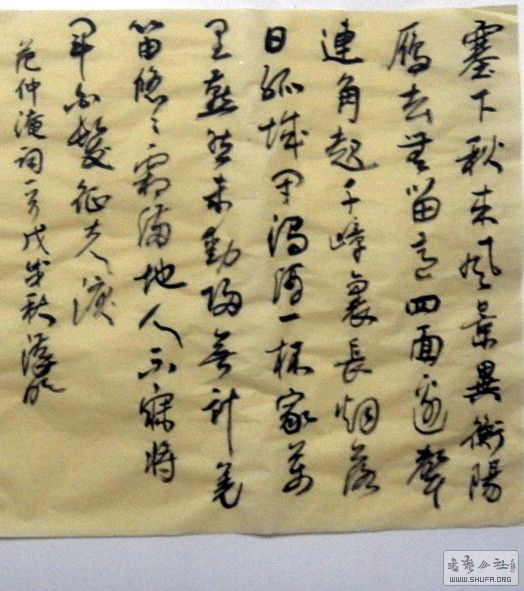 塞下秋来風景異衡陽
雁去無留意四面邊聲
連角起千嶂裏長烟落
日孤城閉濁酒一杯家萬
里燕然未勒歸無計羌
笛悠〻霜滿地人不寐將
軍白髮征夫淚
范仲淹詞一首戊戌秋
书艺公社
WWW.SHUFA.ORG